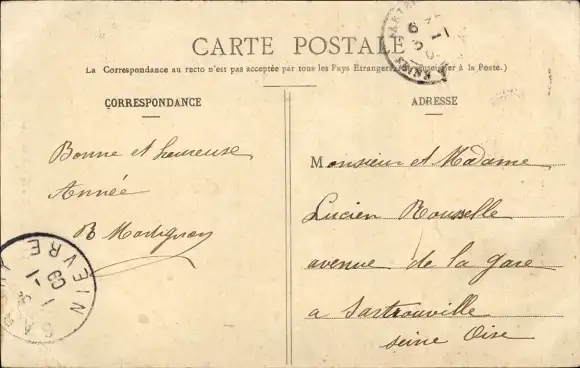 CARTE POSTALE
La Correspondance au recto n'est pas acceptée par tous les Pays Étrangers (Se renseigner à la Poste.)
CORRESPONDANCE
ADRESSE
Bonne et heureuse
Année
Monsieur et Madame
Lucien Rousselle
avenue de la gare
a Sartrouville
seine Oise
NIEVRE